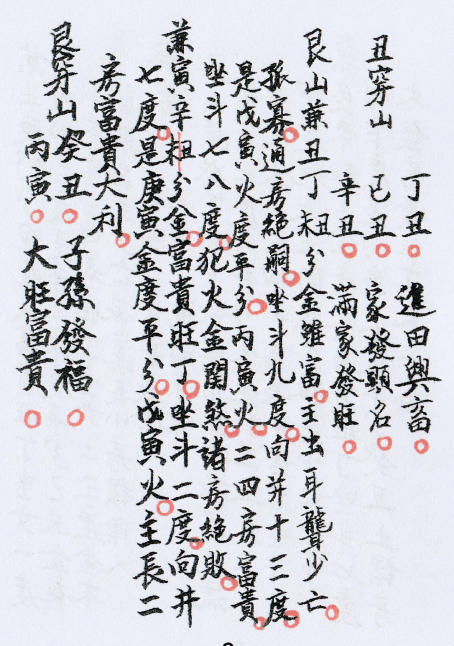 丑穷山
丁丑 進田興畜
己丑 家發顯名
辛丑 滿家發旺
艮山兼丑丁未分金雖富主出耳聾少亡
孤寡通房絕嗣坐斗九度向井十三度
是戊寅火度平分丙寅火二四房富貴
坐斗七八度犯火金関煞諸房絕敗
兼寅辛未分金富貴旺丁坐斗二度向井
七度是庚寅金度平分戊寅火主長二
房富貴大利
艮穷山
癸丑 子孫發福
丙寅 大旺富貴